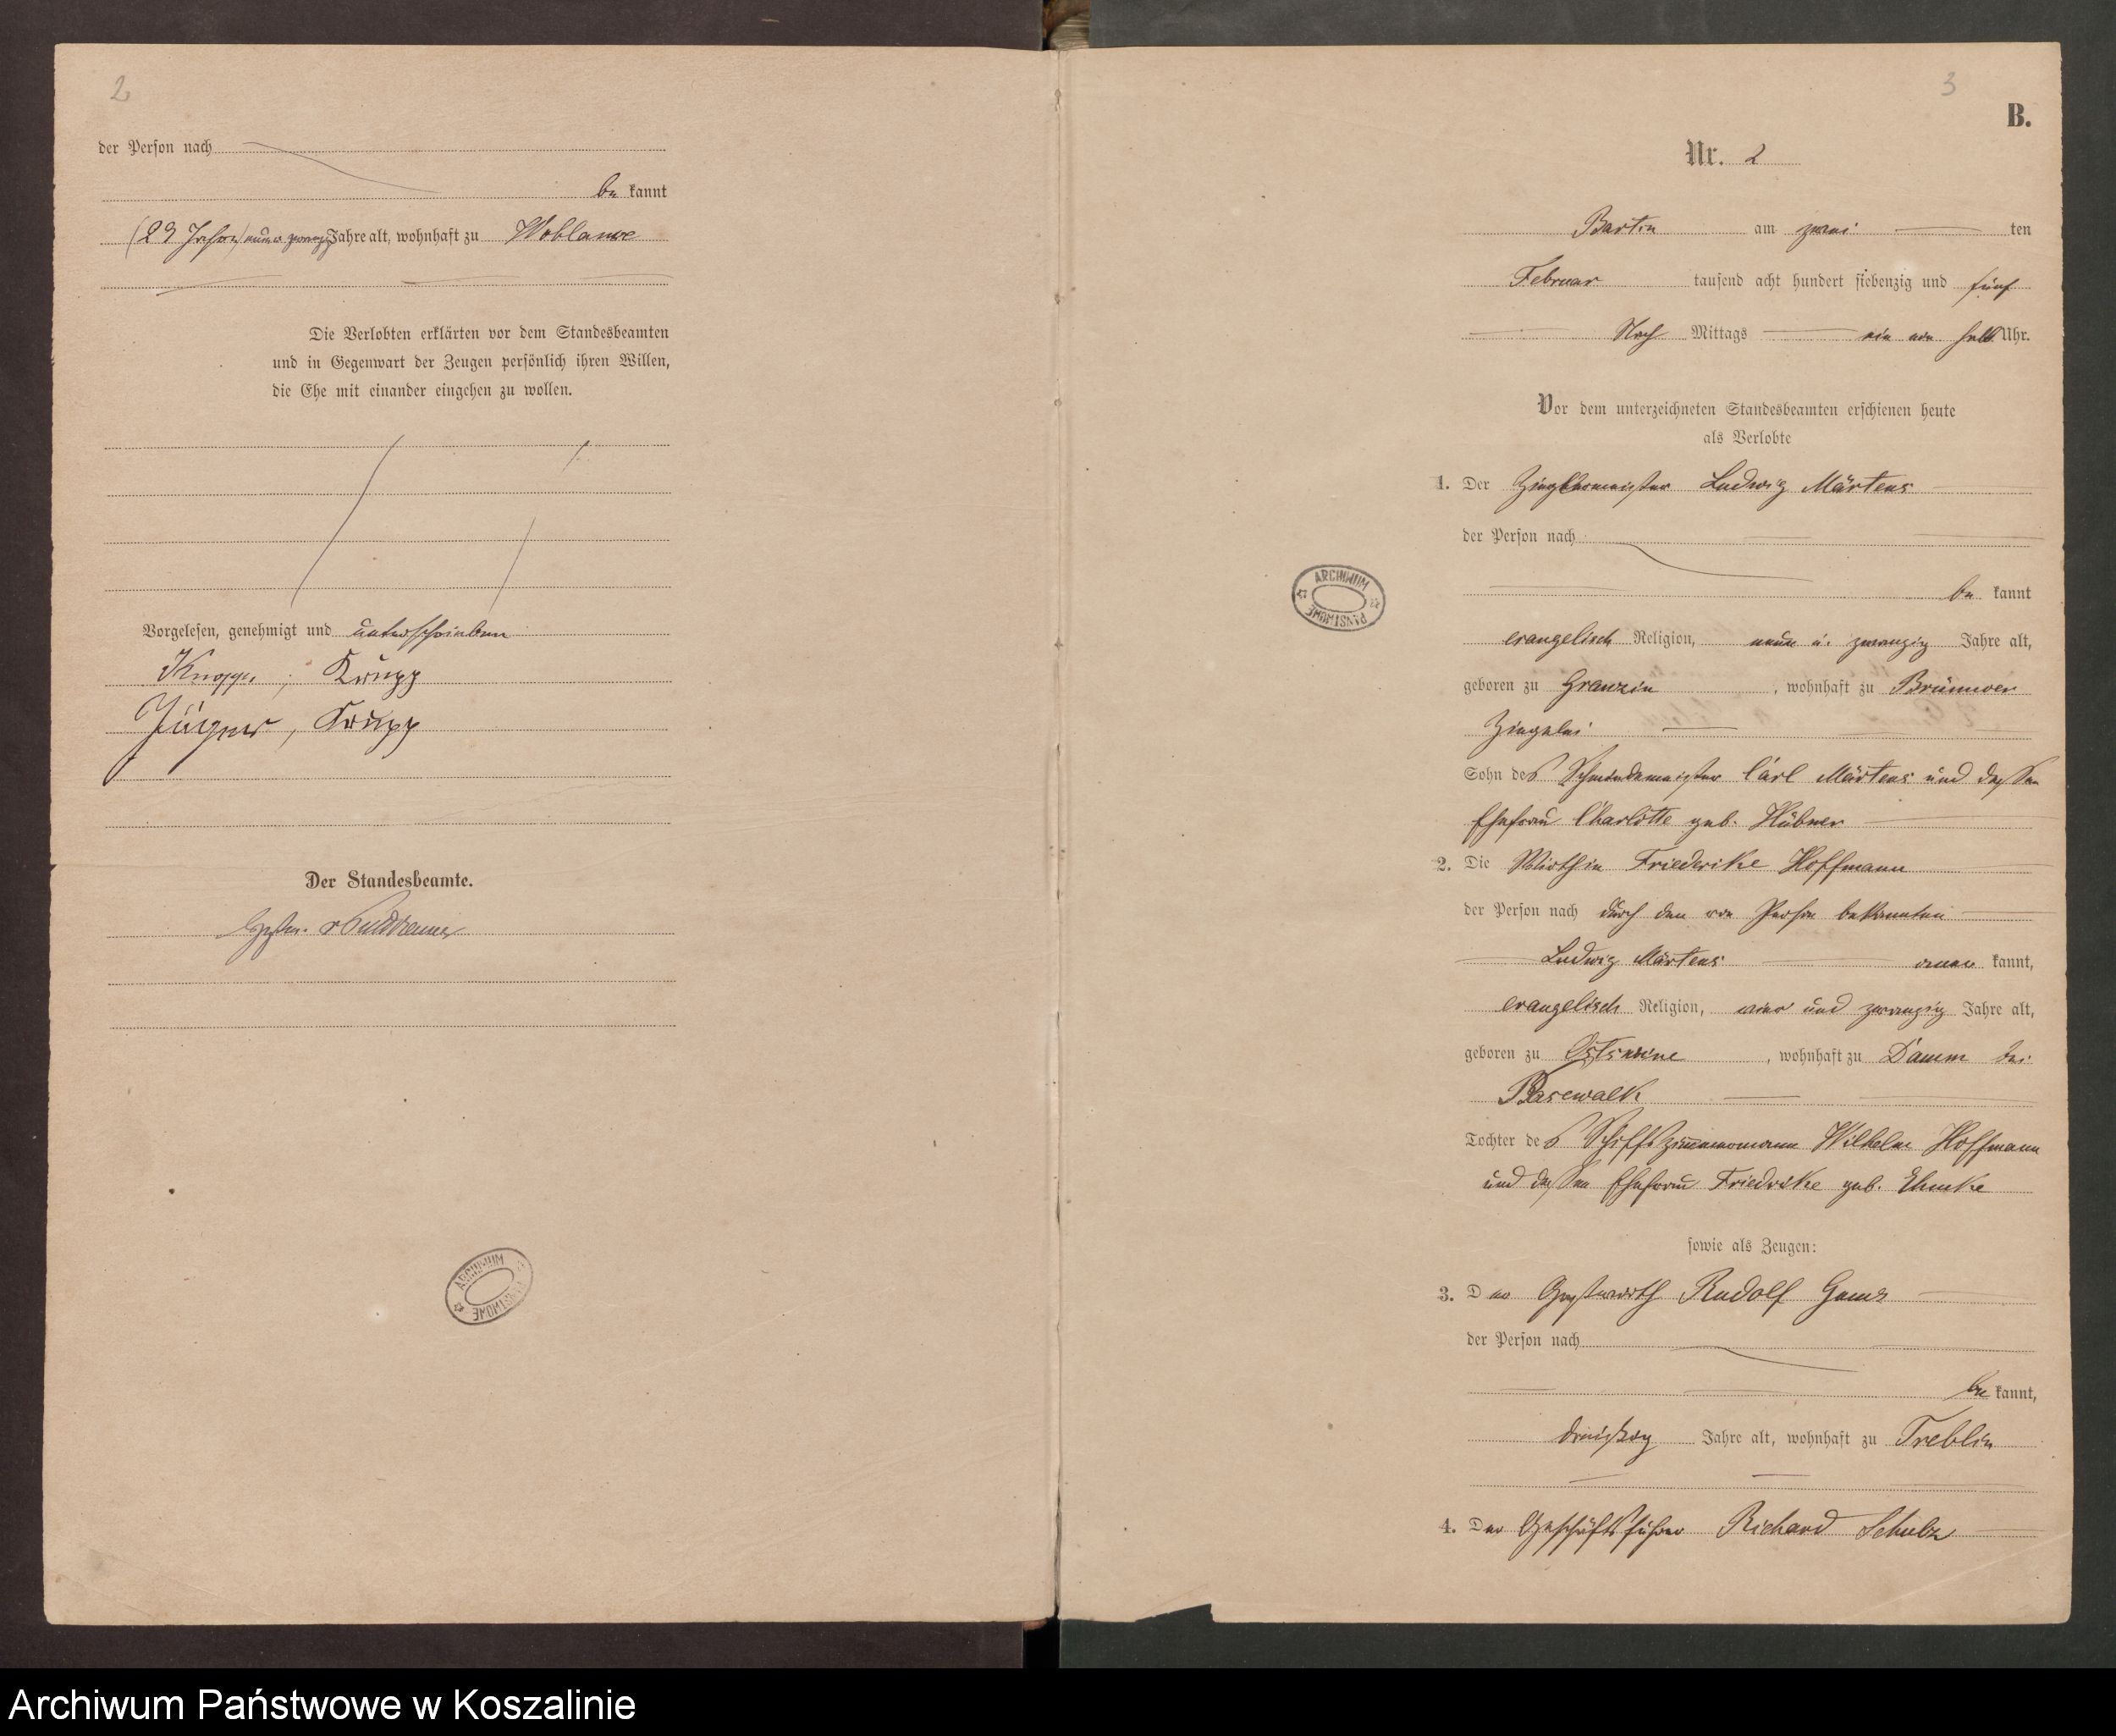 2
der Person nach
be kannt
(29 Jahre) neun u zwanzig Jahre alt, wohnhaft zu Woblanse
Die Verlobten erklärten vor dem Standesbeamten
und in Gegenwart der Zeugen persönlich ihren Willen,
die Ehe mit einander eingehen zu wollen.
Vorgelesen, genehmigt und unterschrieben
Krupp
Jäger, Krupp
Der Standesbeamte.
v Puttkamer
ARCHIWUM PAŃSTWOWE
3
B.
Nr. 2
Bartin am zwei ten
Februar tausend acht hundert siebenzig und fünf
Nach Mittags ein ein halb Uhr.
Vor dem unterzeichneten Standesbeamten erschienen heute
als Verlobte
1. Der Zieglermeister Ludwig Märtens
der Person nach
be kannt
evangelisch Religion, neun u. zwanzig Jahre alt,
geboren zu Granzin, wohnhaft zu Brünnow
Ziegelei
Sohn des Schmiedemeister Carl Märtens und dessen
Ehefrau Charlotte geb. Hübner
2. Die Wirthin Friederike Hoffmann
der Person nach durch den von Person bekannten
Ludwig Märtens aner kannt,
evangelisch Religion, vier und zwanzig Jahre alt,
geboren zu Ostswine, wohnhaft zu Damm bei
Pasewalk
Tochter des Schiffszimmermann Wilhelm Hoffmann
und dessen Ehefrau Friedrike geb. Ehmke
sowie als Zeugen:
3. Der Gastwirth Rudolf Gams
der Person nach
be kannt,
dreißig Jahre alt, wohnhaft zu Treblin
4. Der Geschäftsführer Richard Schulz
ARCHIWUM PAŃSTWOWE
Archiwum Państwowe w Koszalinie